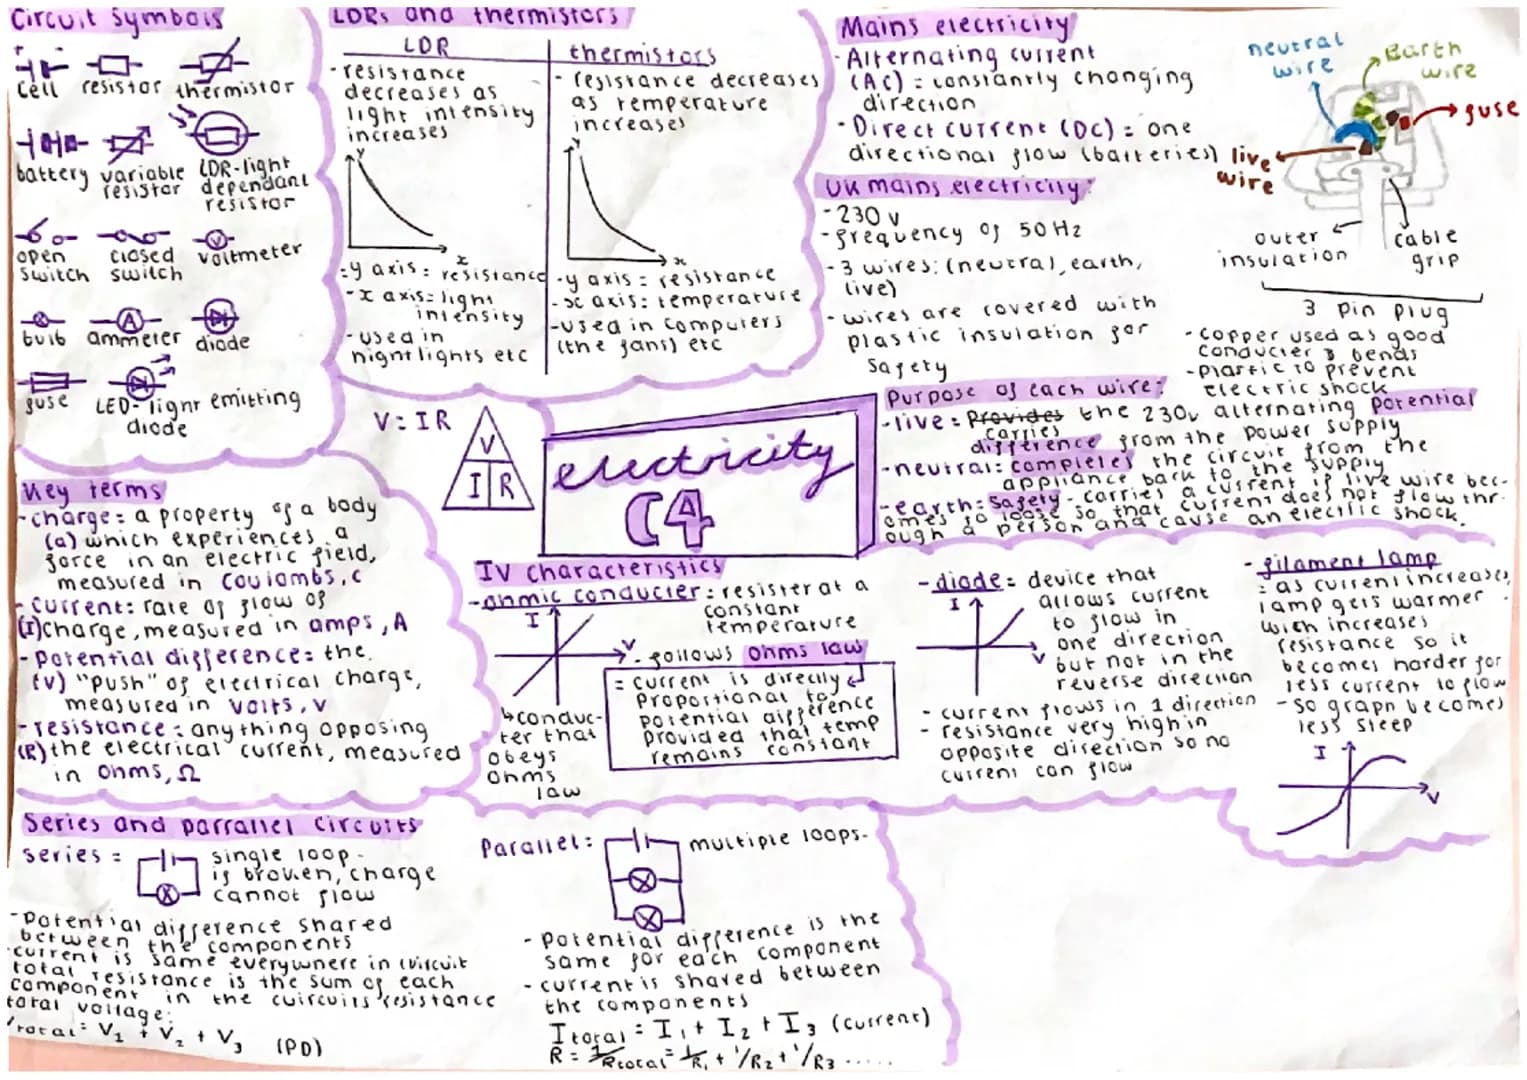 Circuit symbols
+
cell
resistor
thermistor
battery
variable
resistor
LDR-light
dependant
resistor
open
switch
closed
switch
V
voltmeter
bulb
A
ammeter
diode
fuse
LED-light emitting
diode
LDRs and thermistors
LDR
-resistance
decreases as
light intensity
increases
y
x
-y axis: resistance
-x axis: light
intensity
-used in
nightlights etc
thermistors
- resistance decreases
as temperature
increases
y
x
-y axis: resistance
-x axis: temperature
-used in computers
(the fans) etc
Mains electricity
-Alternating current
(AC): constantly changing
direction
-Direct current (DC): one
directional flow (batteries)
UK mains electricity:
-230 v
-frequency of 50Hz
-3 wires: (neutral, earth,
live)
-wires are covered with
plastic insulation for
safety
neutral
wire
Earth
wire
fuse
live
wire
outer
insulation
cable
grip
3 pin plug
-copper used as good
conducter & bends
-plastic to prevent
electric shock
Purpose of each wire:
-live: Provides the 230v alternating potential
carries
difference from the power supply
-neutral: completes the circuit from the
appliance back to the supply
-earth: safety - carries a current if live wire bec-
omes so loose so that current does not flow thr-
ough a person and cause an electric shock.
V=IR
V
I R
electricity
C4
Key terms
-charge: a property of a body
(Q) which experiences a
force in an electric field,
measured in coulombs, c
-current: rate of flow of
(I) charge, measured in amps, A
-potential difference: the
(V) "push" of electrical charge,
measured in volts, v
-resistance: anything opposing
(R) the electrical current, measured
in ohms, Ω
IV characteristics
-ohmic conducter: resister at a
constant
temperature
I
V
- follows ohms law
= current is directly
proportional to
potential difference
provided that temp
remains constant
↳conduc-
ter that
obeys
ohms
law
-diode: device that
allows current
to flow in
one direction
but not in the
reverse direction
I
V
- current flows in 1 direction
- resistance very high in
opposite direction so no
current can flow
- filament lamp
= as current increases,
lamp gets warmer
which increases
resistance so it
becomes harder for
less current to flow
-so graph becomes
less steep
I
V
Series and parrallel circuits
series =
single loop -
is broken, charge
cannot flow
-potential difference shared
between the components
-current is same everywhere in cuircuit
total resistance is the sum of each
component in the cuircuits resistance
total voltage:
Vtotal = V1 + V2 + V3 (PD)
Parallel:
multiple loops-
- potential difference is the
same for each component
- current is shared between
the components
Itotal = I1 + I2 + I3 (current)
R = 1/Rtotal = 1/R1 + 1/R2 + 1/R3 .....